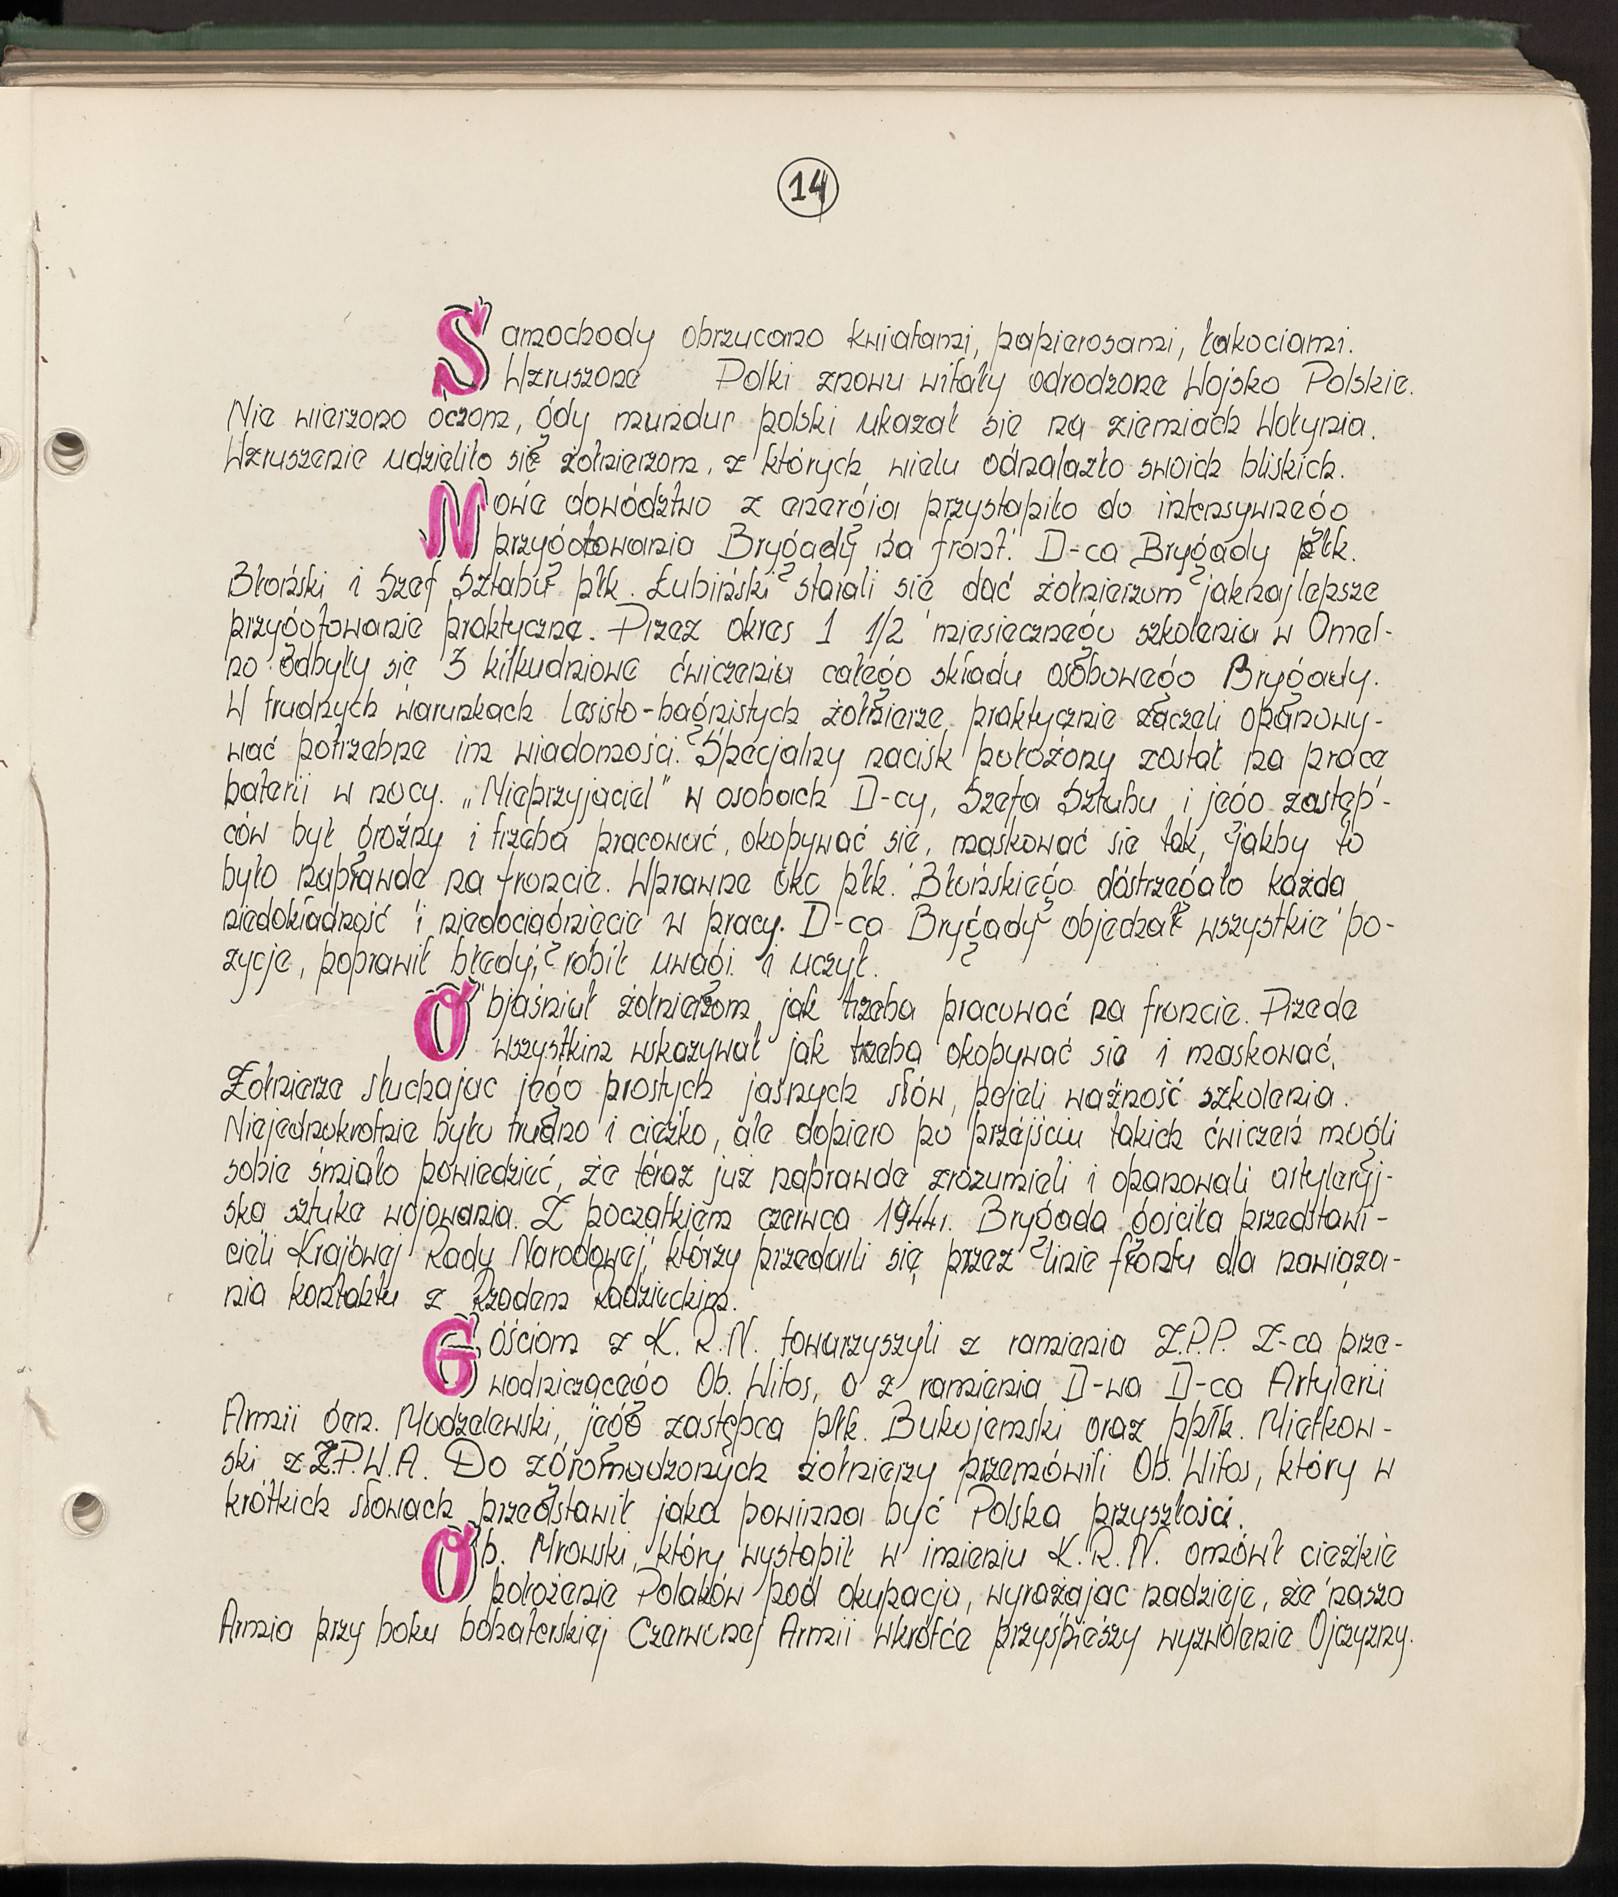 14
Samochody obrzucano kwiatami, papierosami, łakociami.
Wzruszone Polki znowu witały odrodzone Wojsko Polskie.
Nie wierzono oczom, gdy mundur polski ukazał się na ziemiach Wołynia.
Wzruszenie udzieliło się żołnierzom, z których wielu odnalazło swoich bliskich.
Nowe dowództwo z energią przystąpiło do intensywnego
przygotowania Brygady na front. D-ca Brygady płk.
Błoński i Szef Sztabu płk. Łubiński starali się dać żołnierzom jaknajlepsze
przygotowanie praktyczne. Przez okres 1 1/2 miesięcznego szkolenia w Omel-
no odbyły się 3 kilkudniowe ćwiczenia całego składu osobowego Brygady.
W trudnych warunkach lesisto-bagnistych żołnierze praktycznie zaczęli opanowy-
wać potrzebne im wiadomości. Specjalny nacisk położony został na pracę
baterii w nocy. „Nieprzyjaciel" w osobach D-cy, Szefa Sztabu i jego zastęp-
ców był groźny i trzeba pracować, okopywać się, maskować się tak, jakby to
było naprawdę na froncie. Wprawne oko płk. Błońskiego dostrzegało każdą
niedokładność i niedociągnięcie w pracy. D-ca Brygady objechał wszystkie po-
zycje, poprawił błędy, robił uwagi i uczył.
Objaśniał żołnierzom jak trzeba pracować na froncie. Przede
wszystkim wskazywał jak trzeba okopywać się i maskować.
Żołnierze słuchając jego prostych jasnych słów, pojęli ważność szkolenia.
Niejednokrotnie było trudno i ciężko, ale dopiero po przejściu takich ćwiczeń mogli
sobie śmiało powiedzieć, że teraz już naprawdę zrozumieli i opanowali artyleryj-
ską sztukę wojowania. Z początkiem czerwca 1944r. Brygada gościła przedstawi-
cieli Krajowej Rady Narodowej, którzy przedarli się przez linię frontu dla nawiąza-
nia kontaktu z Rządem Radzieckim.
Gościom z K.R.N. towarzyszyli z ramienia Z.P.P. Z-ca prze-
wodniczącego Ob. Witos, a z ramienia D-wa D-ca Artylerii
Armii gen. Modzelewski, jego zastępca płk. Bukojemski oraz ppłk. Mietkow-
ski z Z.P.W.A. Do zgromadzonych żołnierzy przemówili Ob. Witos, który w
krótkich słowach przedstawił jaką powinna być Polska przyszłości.
Ob. Mrowski, który wystąpił w imieniu K.R.N. omówił ciężkie
położenie Polaków pod okupacją, wyrażając nadzieję, że nasza
Armia przy boku bohaterskiej Czerwonej Armii wkrótce przyśpieszy wyzwolenie Ojczyzny.